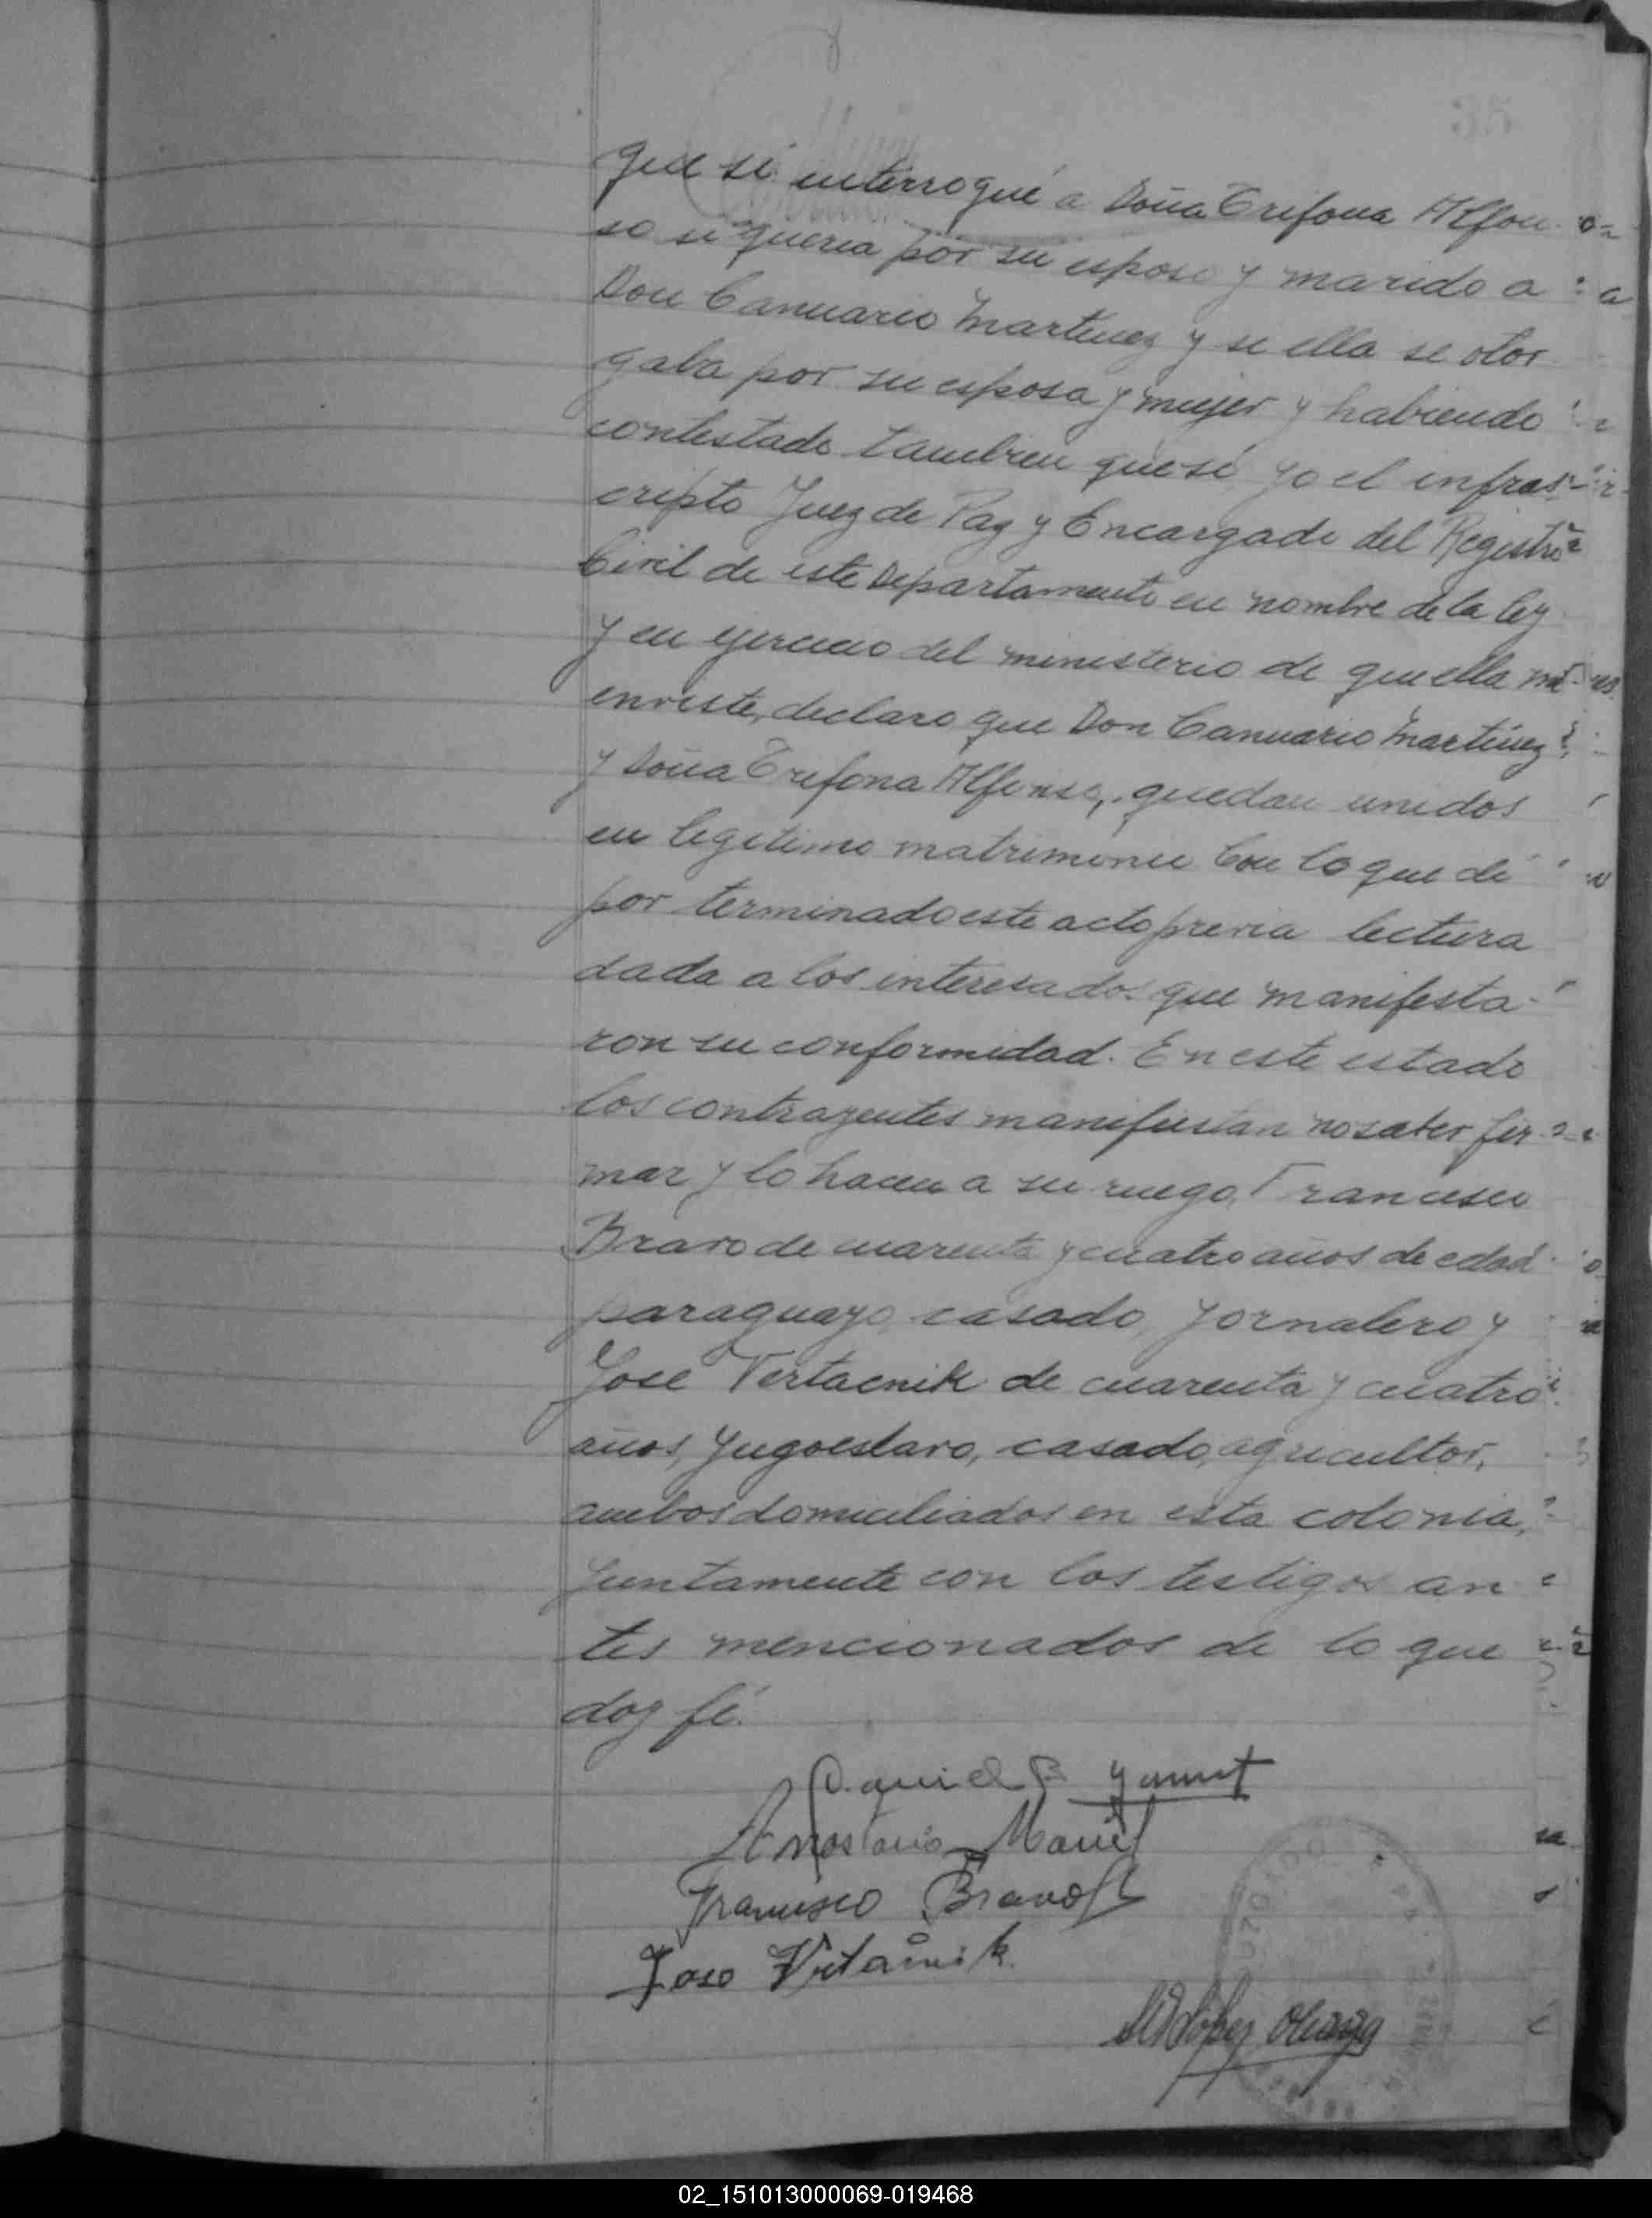 que sí interrogué a Doña Trifona Alfon
so si queria por su esposo y marido a
Don Canuario Martinez y si ella se otor
gaba por su esposa y mujer y habiendo
contestado tambien que sí yo el infras-
cripto Juez de Paz y Encargado del Registro
Civil de este Departamento en nombre de la ley
y en ejercicio del ministerio de que ella me
enviste, declaro que Don Canuario Martinez
y Doña Trifona Alfonso, quedan unidos
en legitimo matrimonio Con lo que dí
por terminado este acto previa lectura
dada a los interesados que manifesta-
ron su conformidad. En este estado
los contrayentes manifiestan no saber fir-
mar y lo hacen a su ruego, Francisco
Bravo de cuarenta y cuatro años de edad
paraguayo, casado, jornalero y
José Vertacnik de cuarenta y cuatro
años, Yugoeslavo, casado, agricultor,
ambos domiciliados en esta colonia,
juntamente con los testigos an-
tes mencionados de lo que
doy fé.
Daniel
Francisco Bravo
Lopez
02_151013000069-019468